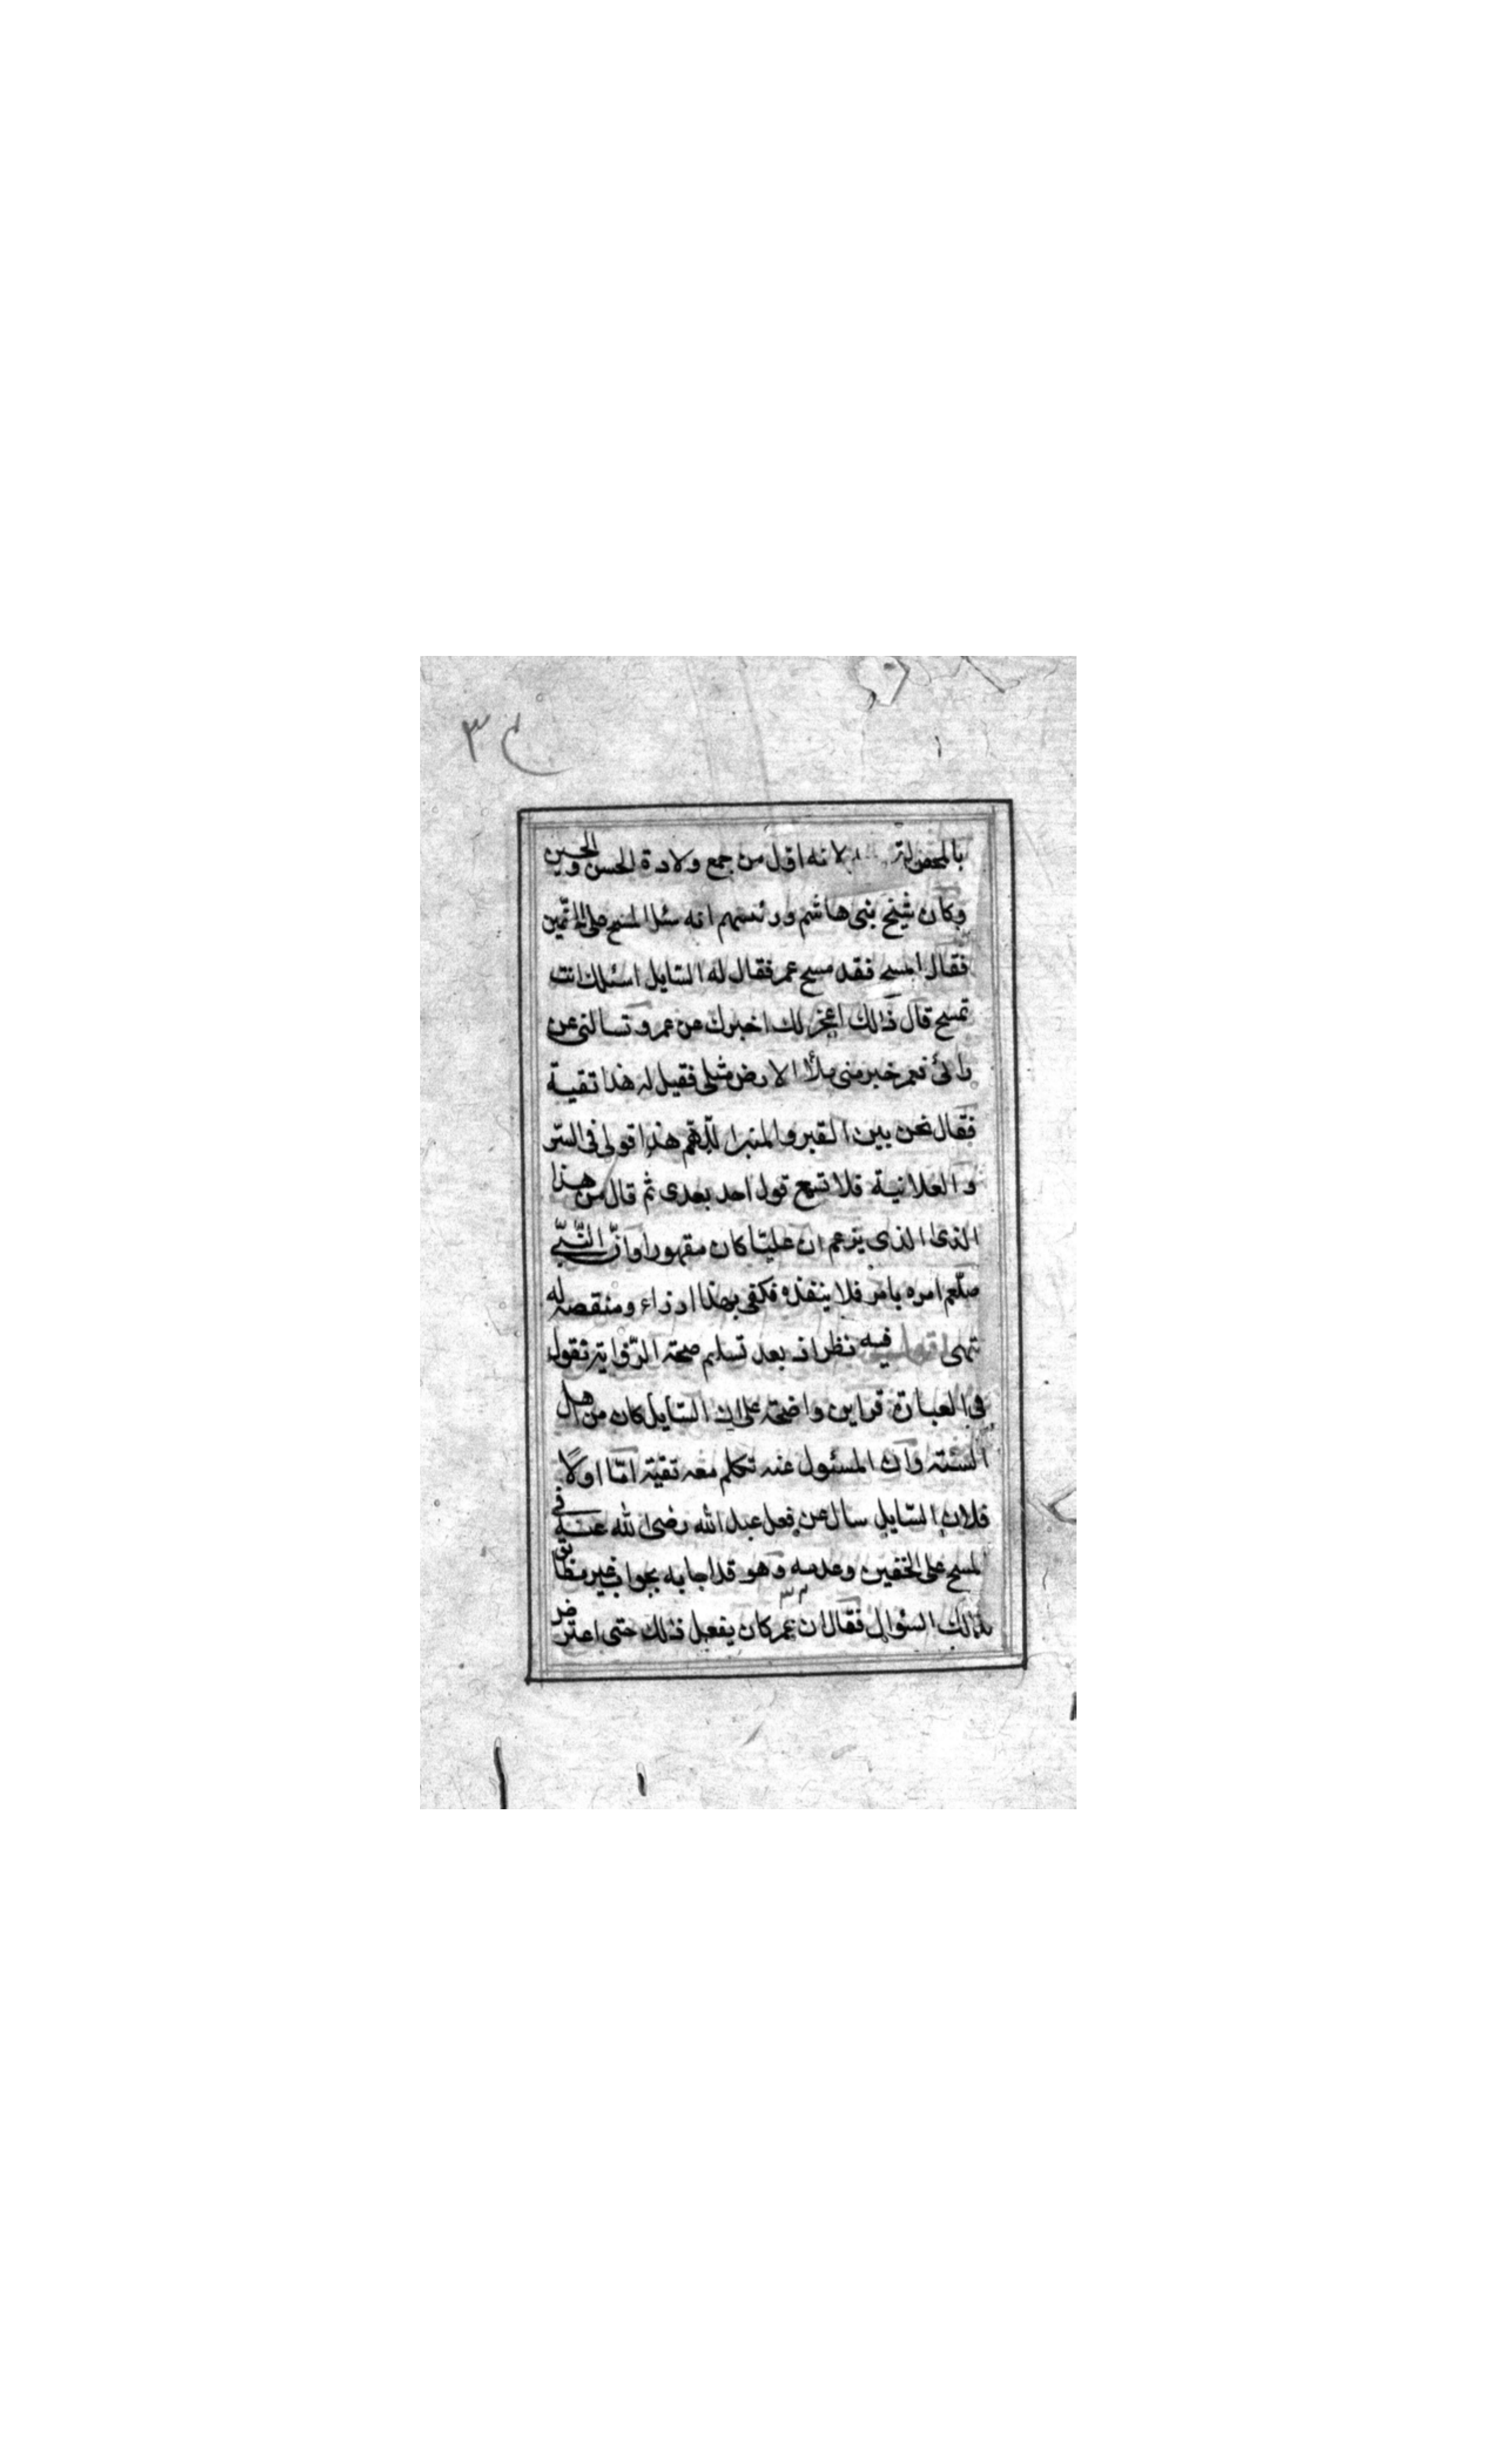 ٣
بالمحض لانه اول من جمع ولادة الحسن والحسين
وكان شيخ بنى هاشم ورئيسهم انه سئل المسح على الخفين
فقال امسح فقد مسح عمر فقال له السايل اسئلك انت
تمسح قال ذلك اعجز لك اخبرك عن عمر وتسالنى عن
رائ نعم خير منى ملأ الارض مثلى فقيل له هذا تقية
فقال نحن بين القبر والمنبر اللّهم هذا قولى فى السّر
و العلانية فلا تسمع قول احد بعدى ثم قال من هذا
الذى الذى يزعم ان عليّا كان مقهورا وانّ النّبىّ
صلعم امره بامر فلا ينفذه فكفى بهذا ازراء ومنقصه له
نتهى اقول فيه نظر اذ بعد تسليم صحته الرّواية نقول
فى العبارة قراين واضحة على ان السّايل كان من اهل
السنّته وان المسئول عنه تكلم معه تقيّة امّا اولاً
فلان السّايل سال عن فعل عبد الله رضى الله عنه فى
المسح على الخفين وعدمه وهو قد اجابه بجواب غير مطابق
لذلك السئوال فقال ان عمر كان يفعل ذلك حتى اعترض